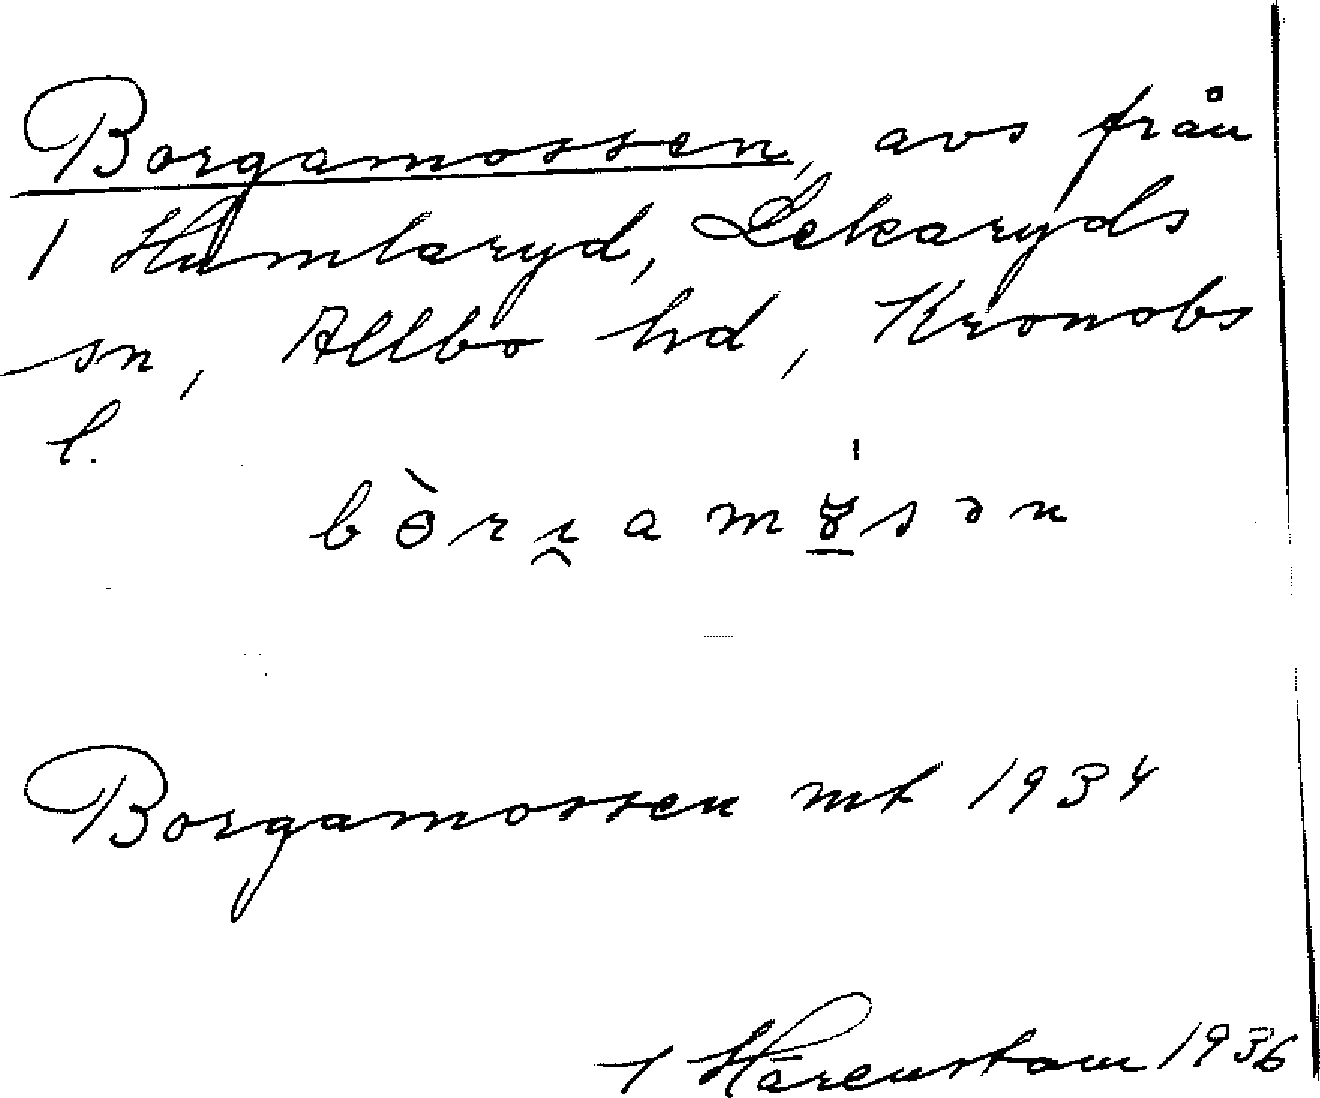 Borgamossen, avs från
1 Humlaryd, Lekaryds
sn, Allbo hd, Kronobs
l.
Borgamossen mt 1934
Härenstam 1936